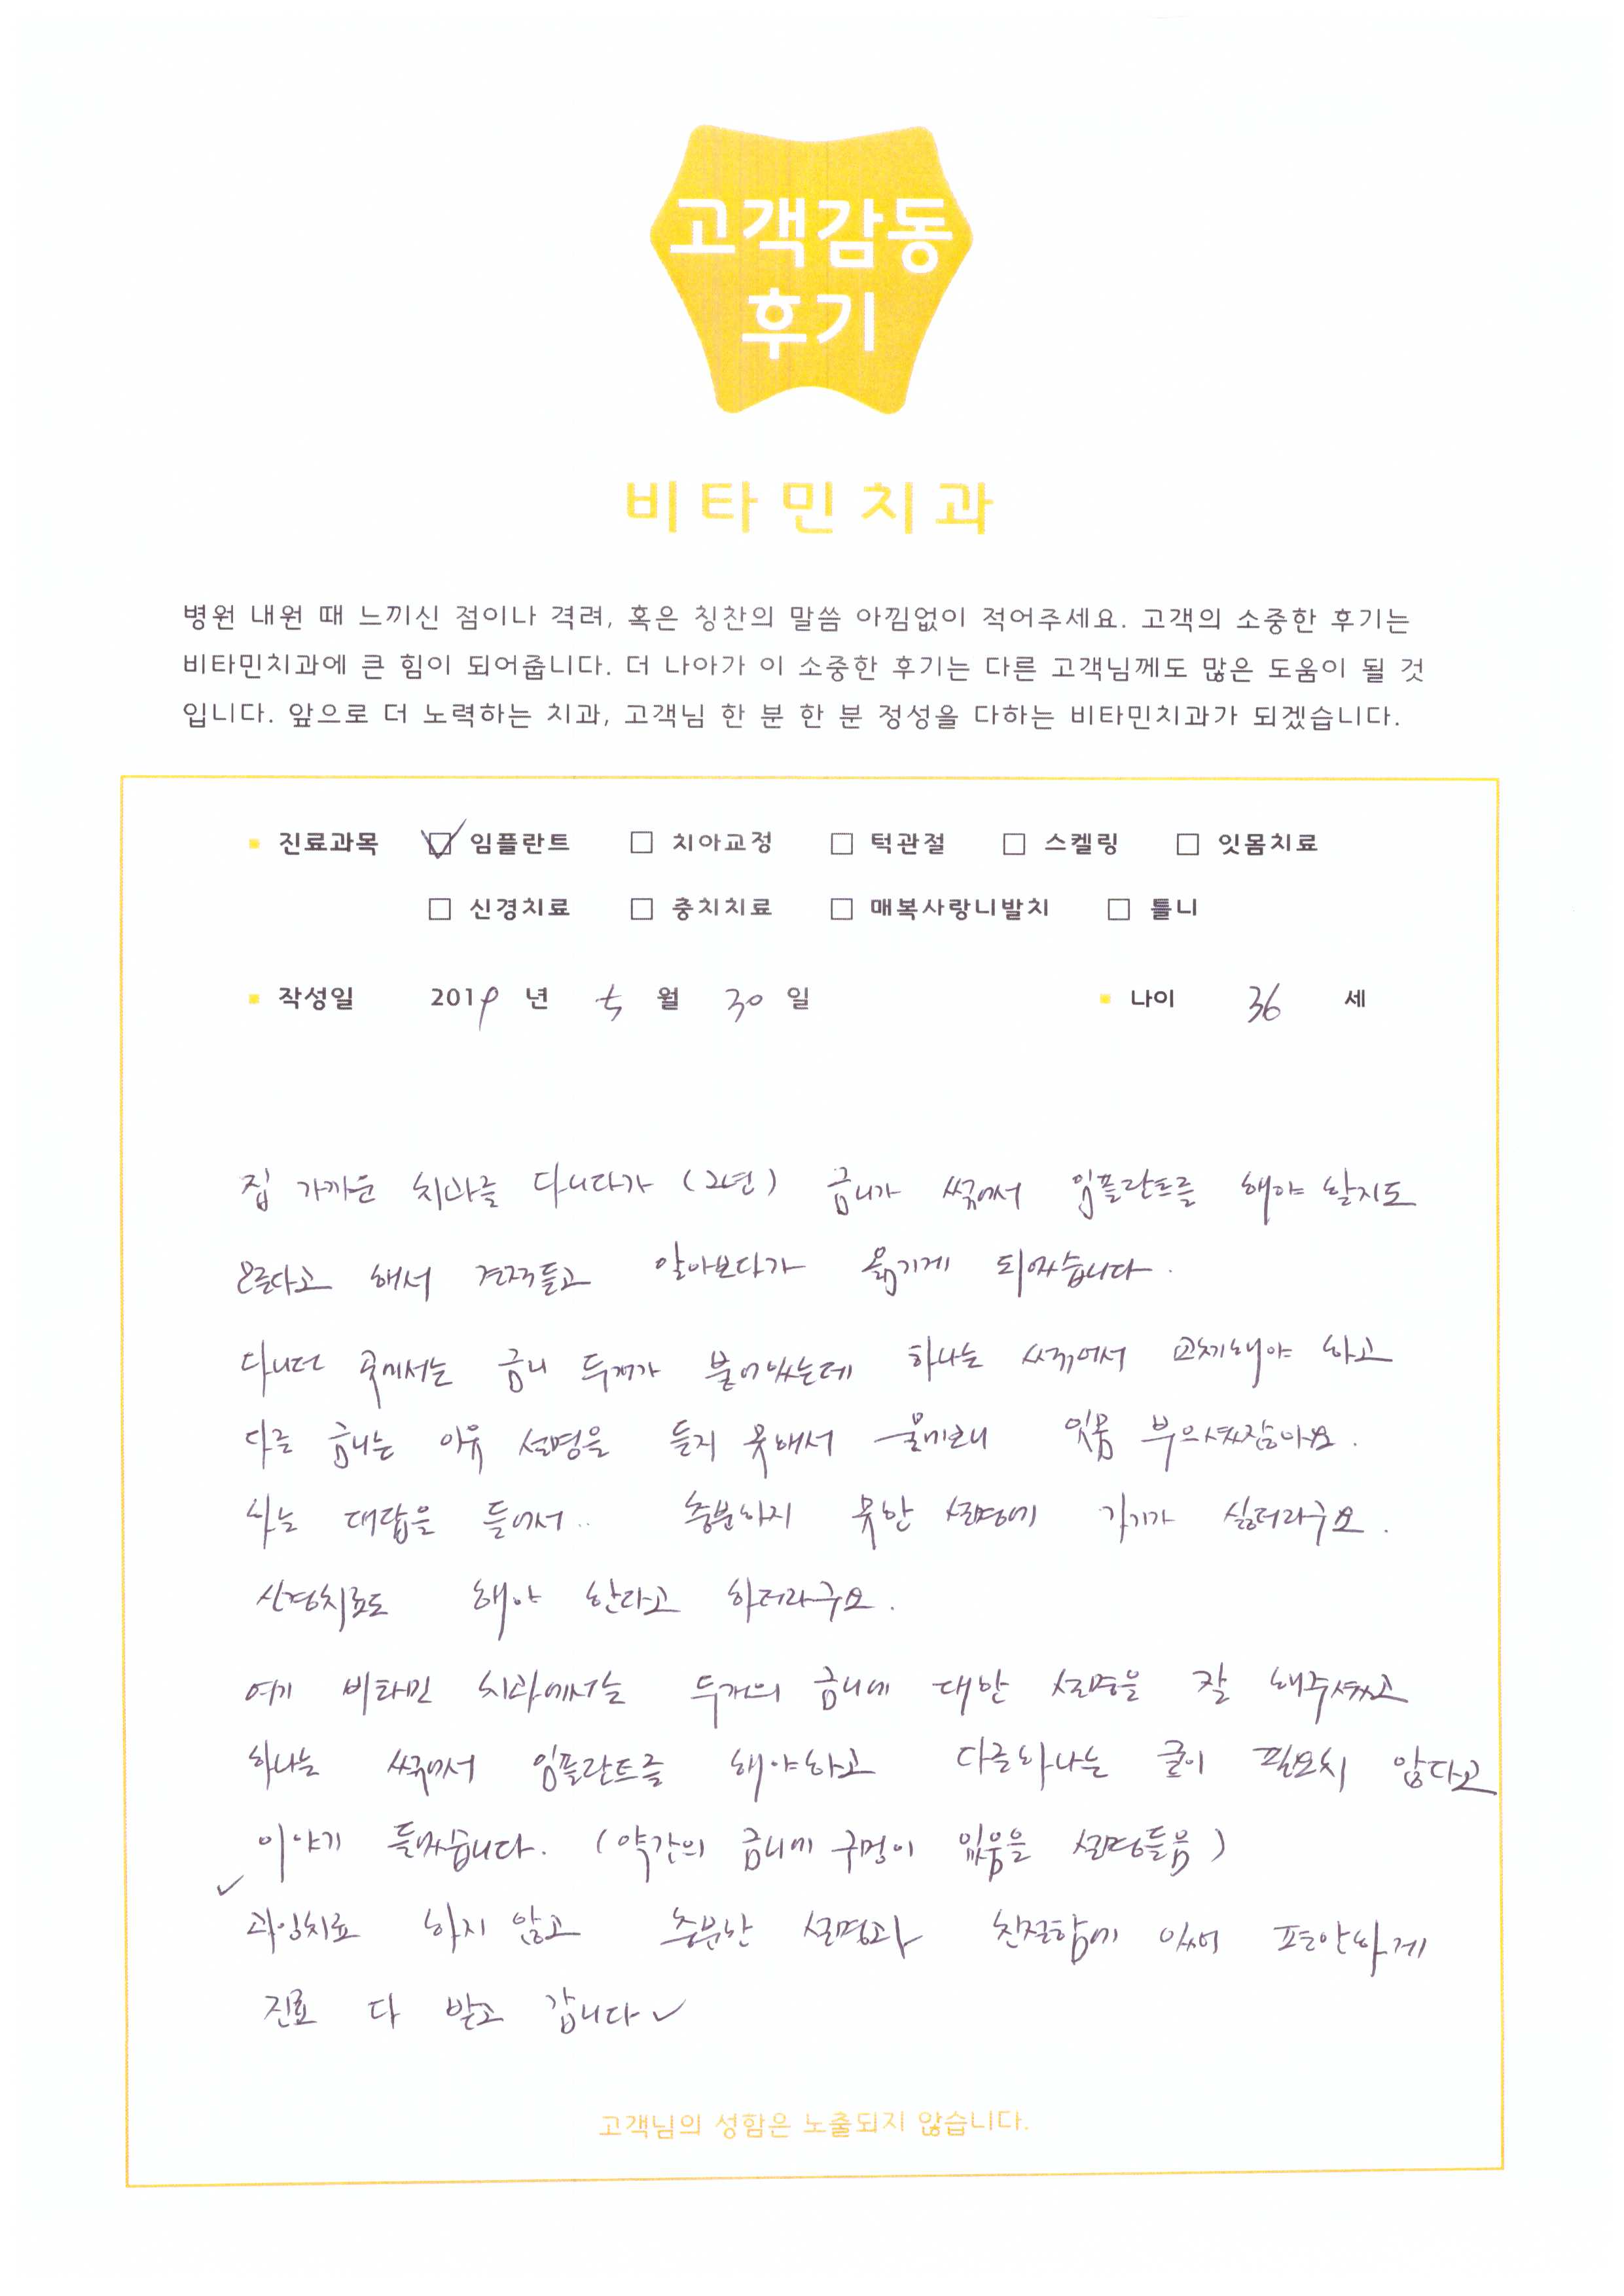 고객감동
후기
비타민치과
병원 내원 때 느끼신 점이나 격려, 혹은 칭찬의 말씀 아낌없이 적어주세요. 고객의 소중한 후기는
비타민치과에 큰 힘이 되어줍니다. 더 나아가 이 소중한 후기는 다른 고객님께도 많은 도움이 될 것
입니다. 앞으로 더 노력하는 치과, 고객님 한 분 한 분 정성을 다하는 비타민치과가 되겠습니다.
진료과목 임플란트 치아교정 턱관절 스켈링 잇몸치료
신경치료 충치치료 매복사랑니발치 틀니
작성일 2019 년 5 월 30 일 나이 36 세
집 가까운 치과를 다니다가 (2년) 금니가 썩어서 임플란트를 해야 할지도
모른다고 해서 알아보다가 옮기게 되었습니다.
다니던 곳에서는 금니 두개가 붙어있는데 하나는 썩어서 교체해야 하고
다른 금니는 이유 설명을 듣지 못해서 물어보니 잇몸 부으셨잖아요.
하는 대답을 들어서.. 충분하지 못한 설명에 가기가 싫더라구요.
신경치료도 해야 한다고 하더라구요.
여기 비타민 치과에서는 두개의 금니에 대한 설명을 잘 해주셨고
하나는 썩어서 임플란트를 해야하고 다른하나는 굳이 필요치 않다고
이야기 들었습니다. (약간의 금니에 구멍이 있음을 설명들음)
과잉치료 하지 않고 충분한 설명과 친절함에 있어 편안하게
진료 다 받고 갑니다
고객님의 성함은 노출되지 않습니다.